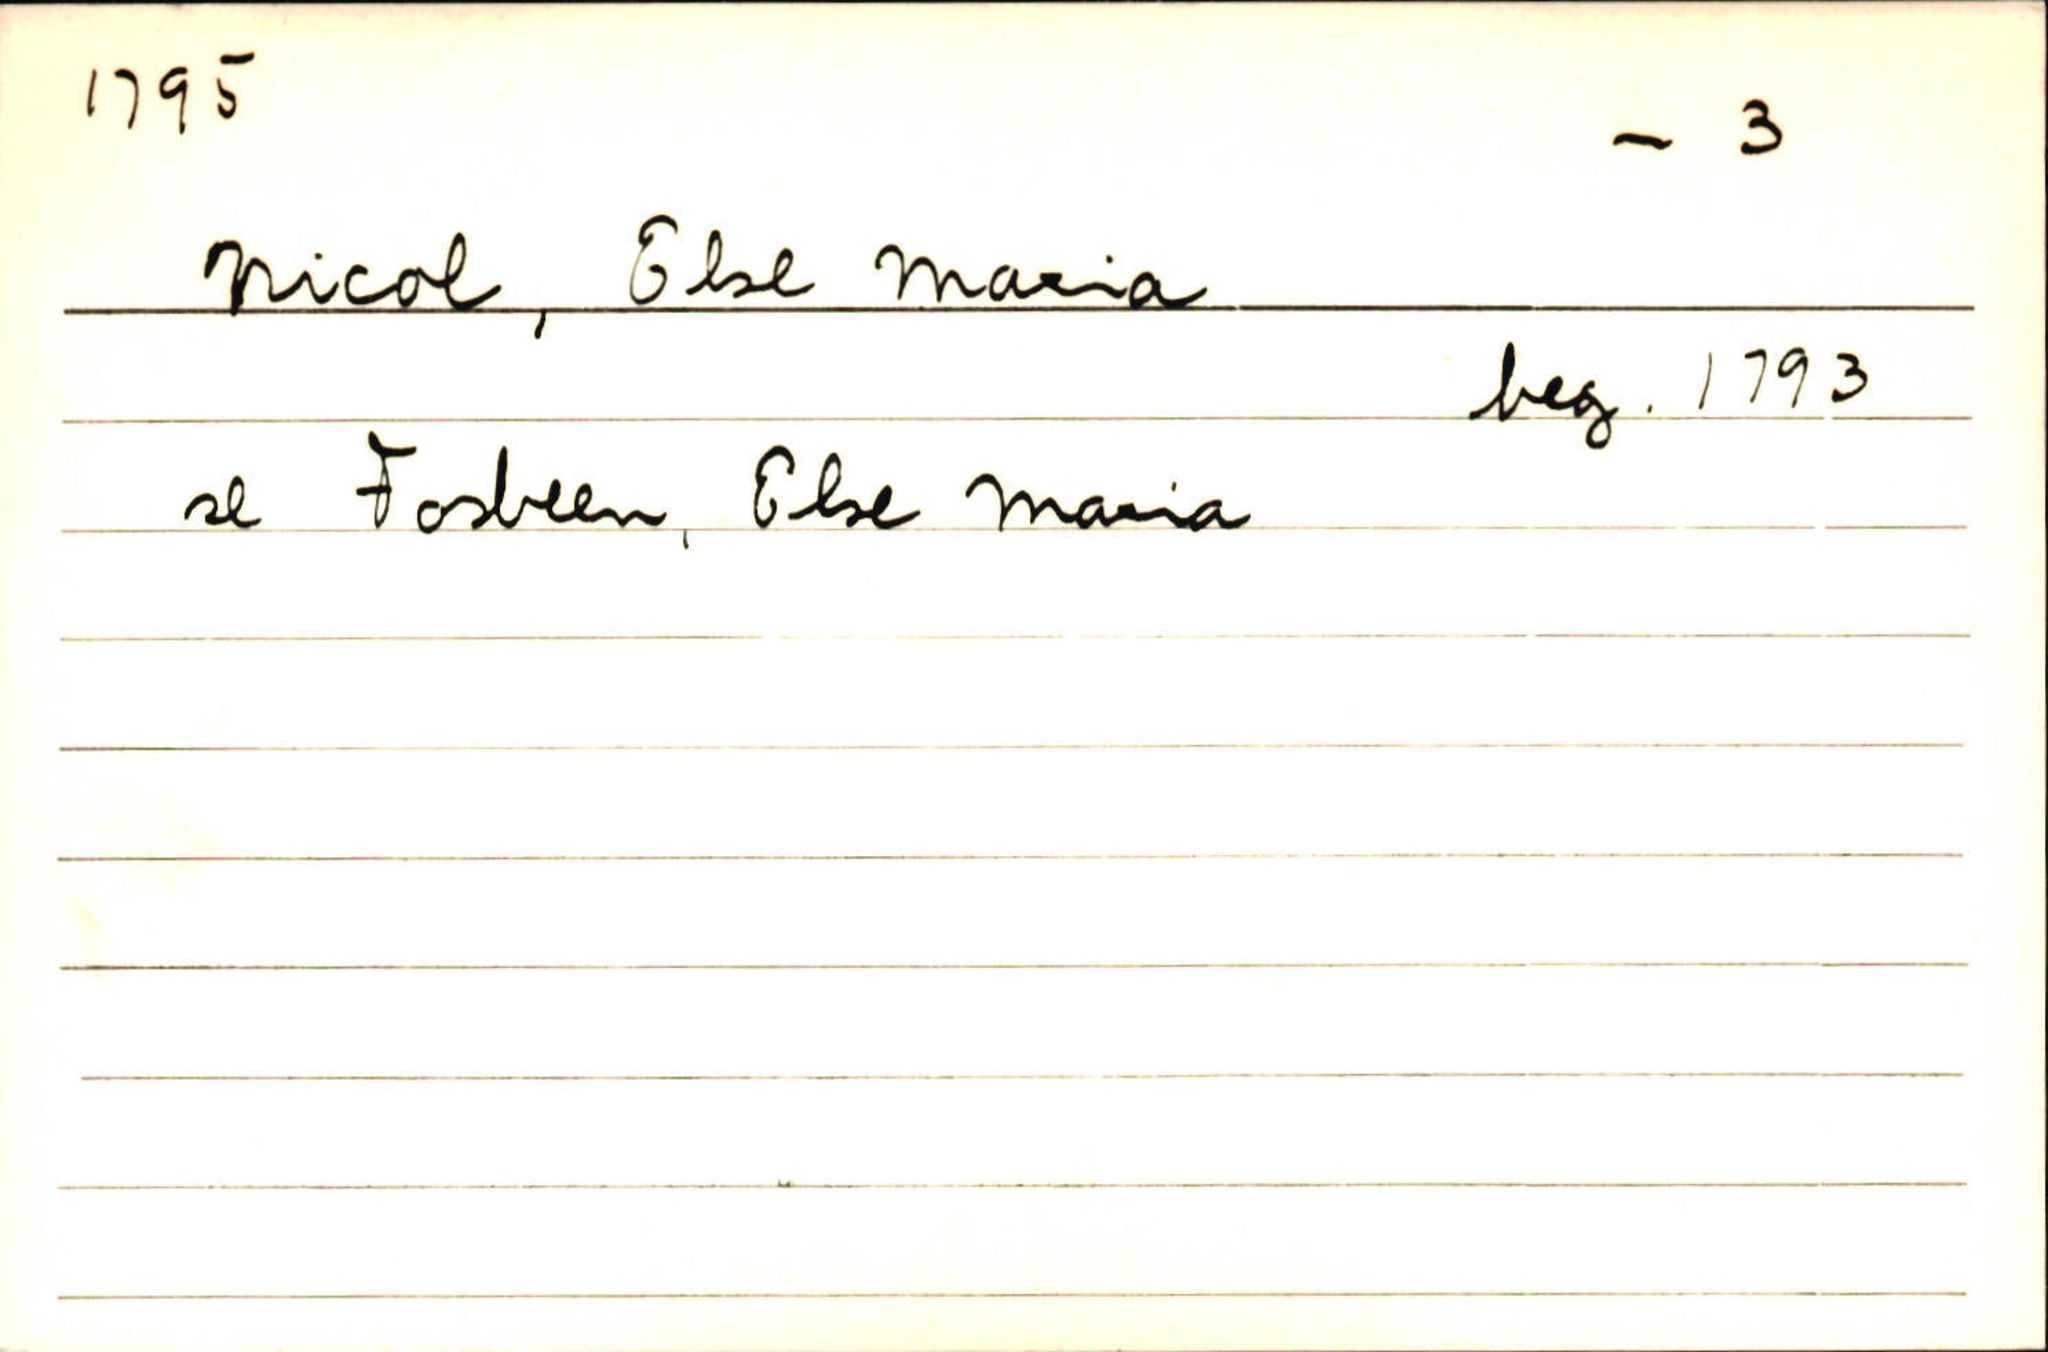 1795
- 3
Nicol, Else Maria
beg. 1793
se Fosbeen, Else Maria